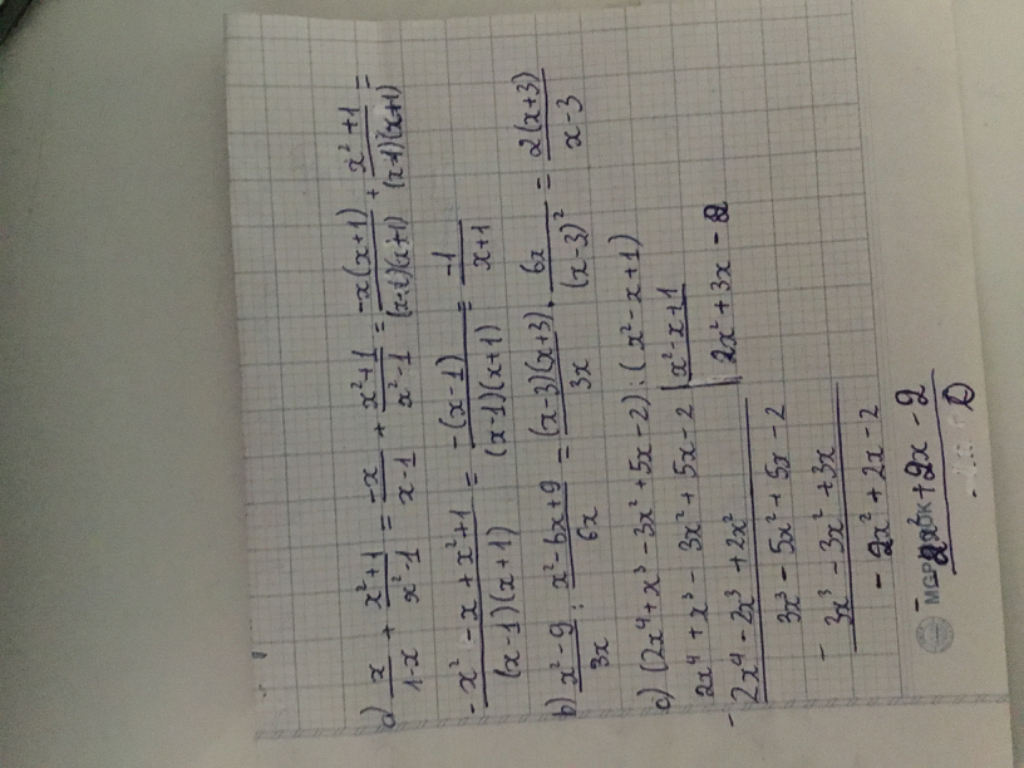 a) x/(1-x) + (x²+1)/(x²-1) = -x/(x-1) + (x²+1)/(x²-1) = -x(x+1)/((x-1)(x+1)) + (x²+1)/((x-1)(x+1)) =
(-x² - x + x² + 1)/((x-1)(x+1)) = -(x-1)/((x-1)(x+1)) = -1/(x+1)
b) (x²-9)/3x : (x²-6x+9)/6x = (x-3)(x+3)/3x · 6x/(x-3)² = 2(x+3)/(x-3)
c) (2x⁴+x³-3x²+5x-2):(x²-x+1)
2x⁴+x³-3x²+5x-2 | x²-x+1
- 2x⁴-2x³+2x² | 2x²+3x-2
3x³-5x²+5x-2
- 3x³-3x²+3x
-2x²+2x-2
- -2x²+2x-2
0